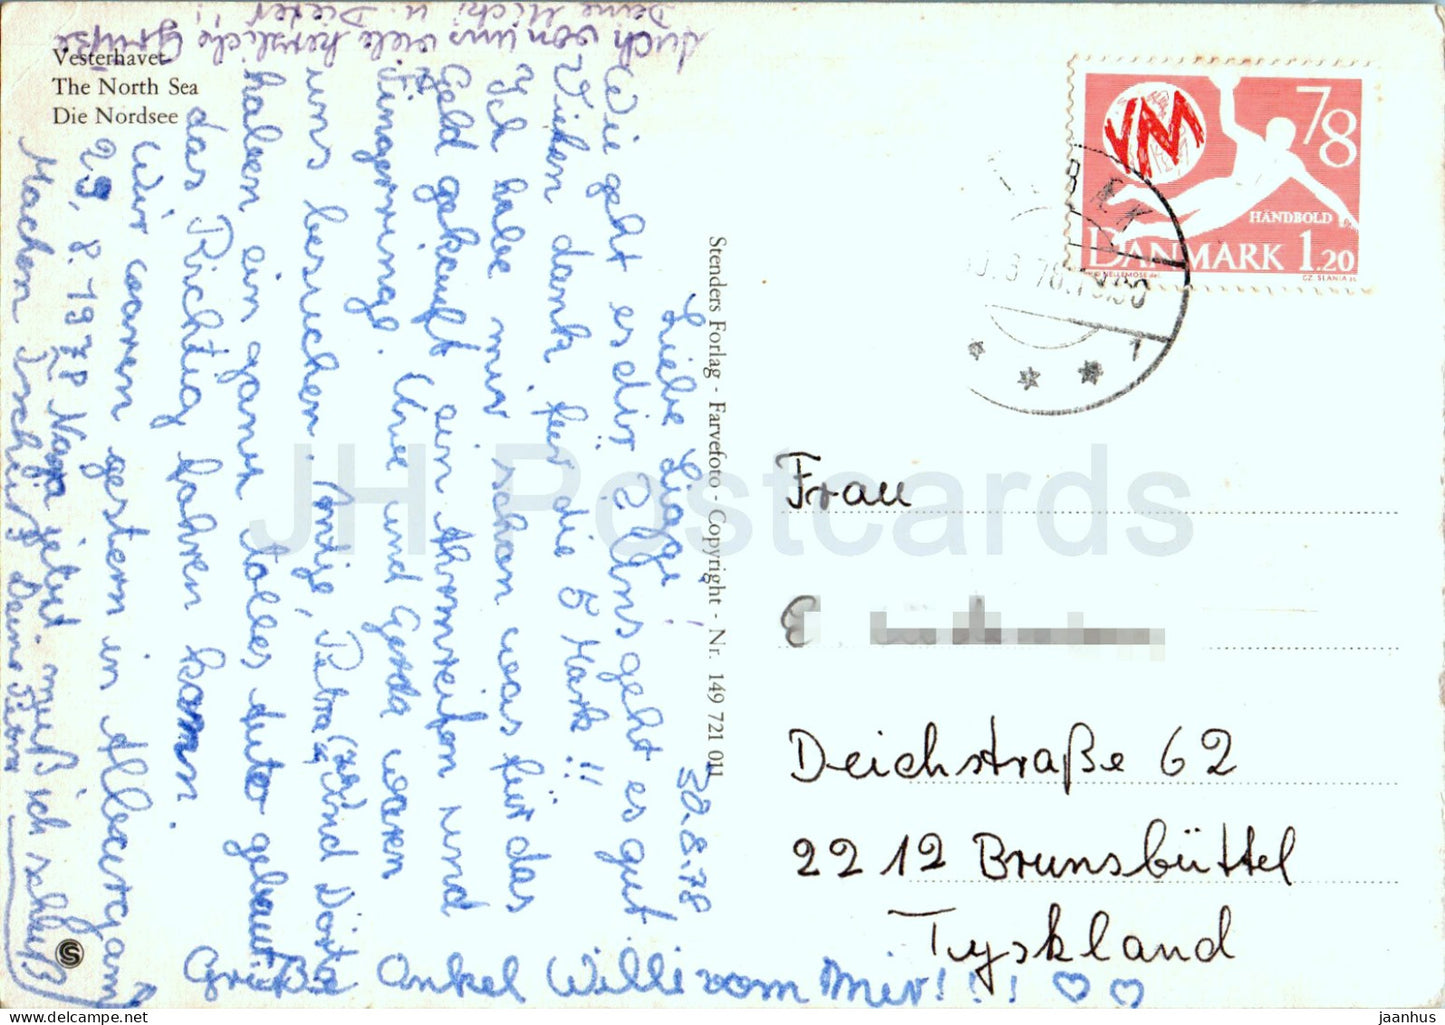 Vesterhavet
The North Sea
Die Nordsee
30.8.78
Liebe Liggi!
Wie geht es dir? Uns geht es gut
Vielen dank für die 5 Mark!!
Ich habe mir schon was für das
Geld gekauft ein Armreifen und
Fingerringe. Uwe und Gerda waren
uns besuchen. Antje, Petra und Dört
haben ein ganz tolles Auto gebaut
das Richtig fahren kann.
Wir waren gestern in
29. 8. 1978 Naja jetzt muß ich schluß
Machen Tschüß Deine
Grüße Onkel Willi vom Mir!!!
Auch von uns viele herzliche Grüße
Deine Micki u. Dieter!!
Stenders Forlag - Farvefoto - Copyright - Nr. 149 721 011
VM
78
HÅNDBOLD
DANMARK 1.20
CZ. SLANIA
Frau
Deichstraße 62
2212 Brunsbüttel
Tyskland
JH Postcards
S
jaanhus.com